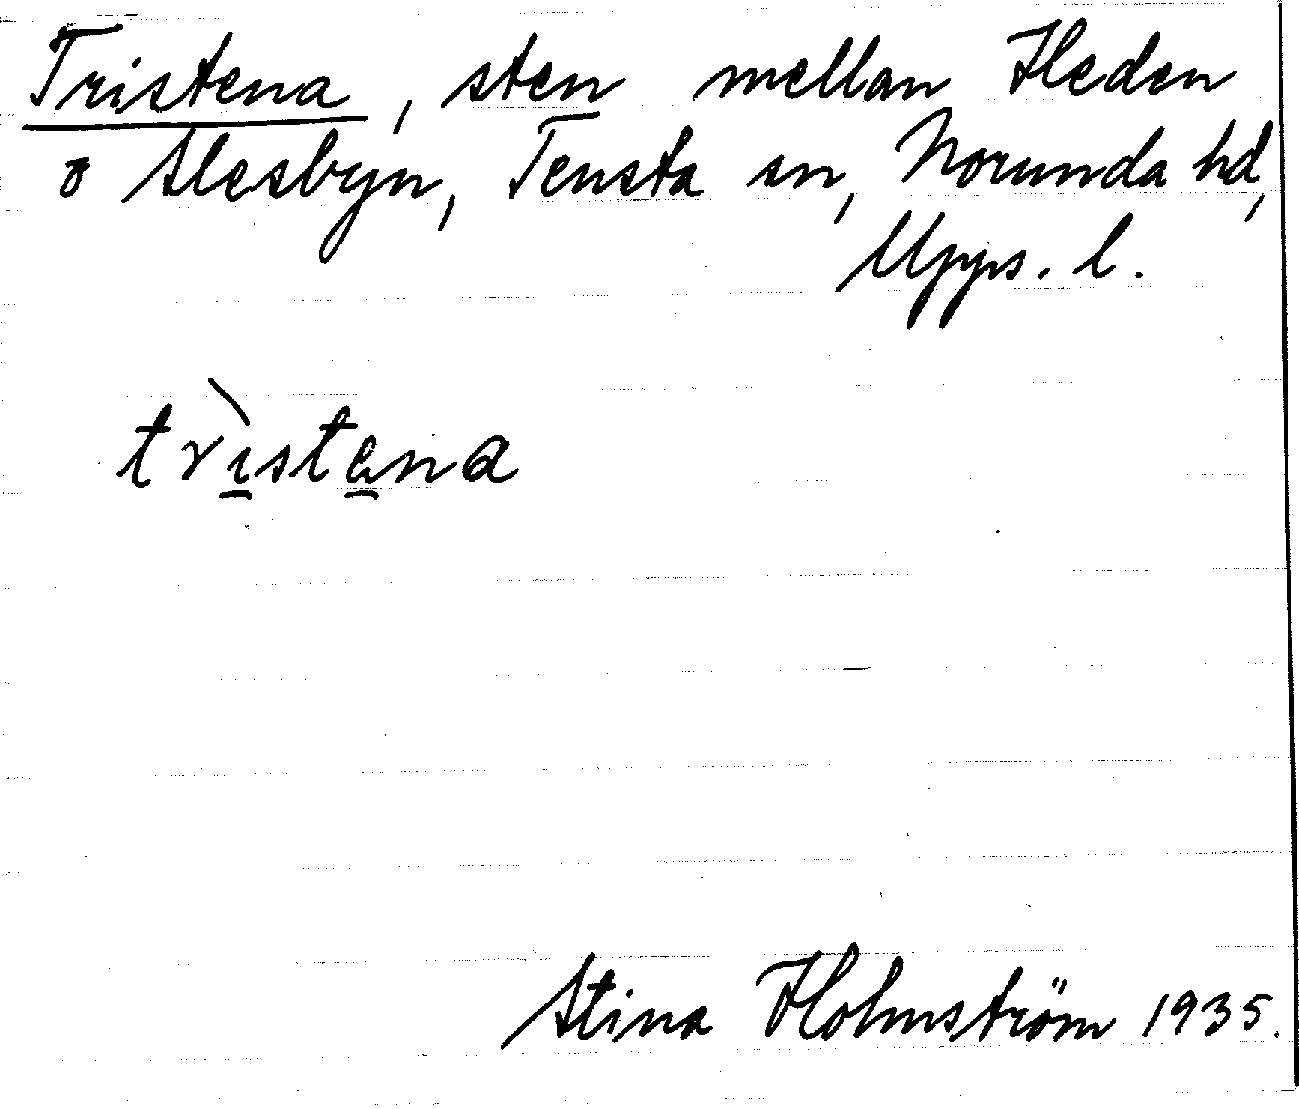 Tristena, sten mellan Heden
o Slesbyn, Tensta sn, Norunda hd,
Upps. l.
trìstena
Stina Holmström 1935.